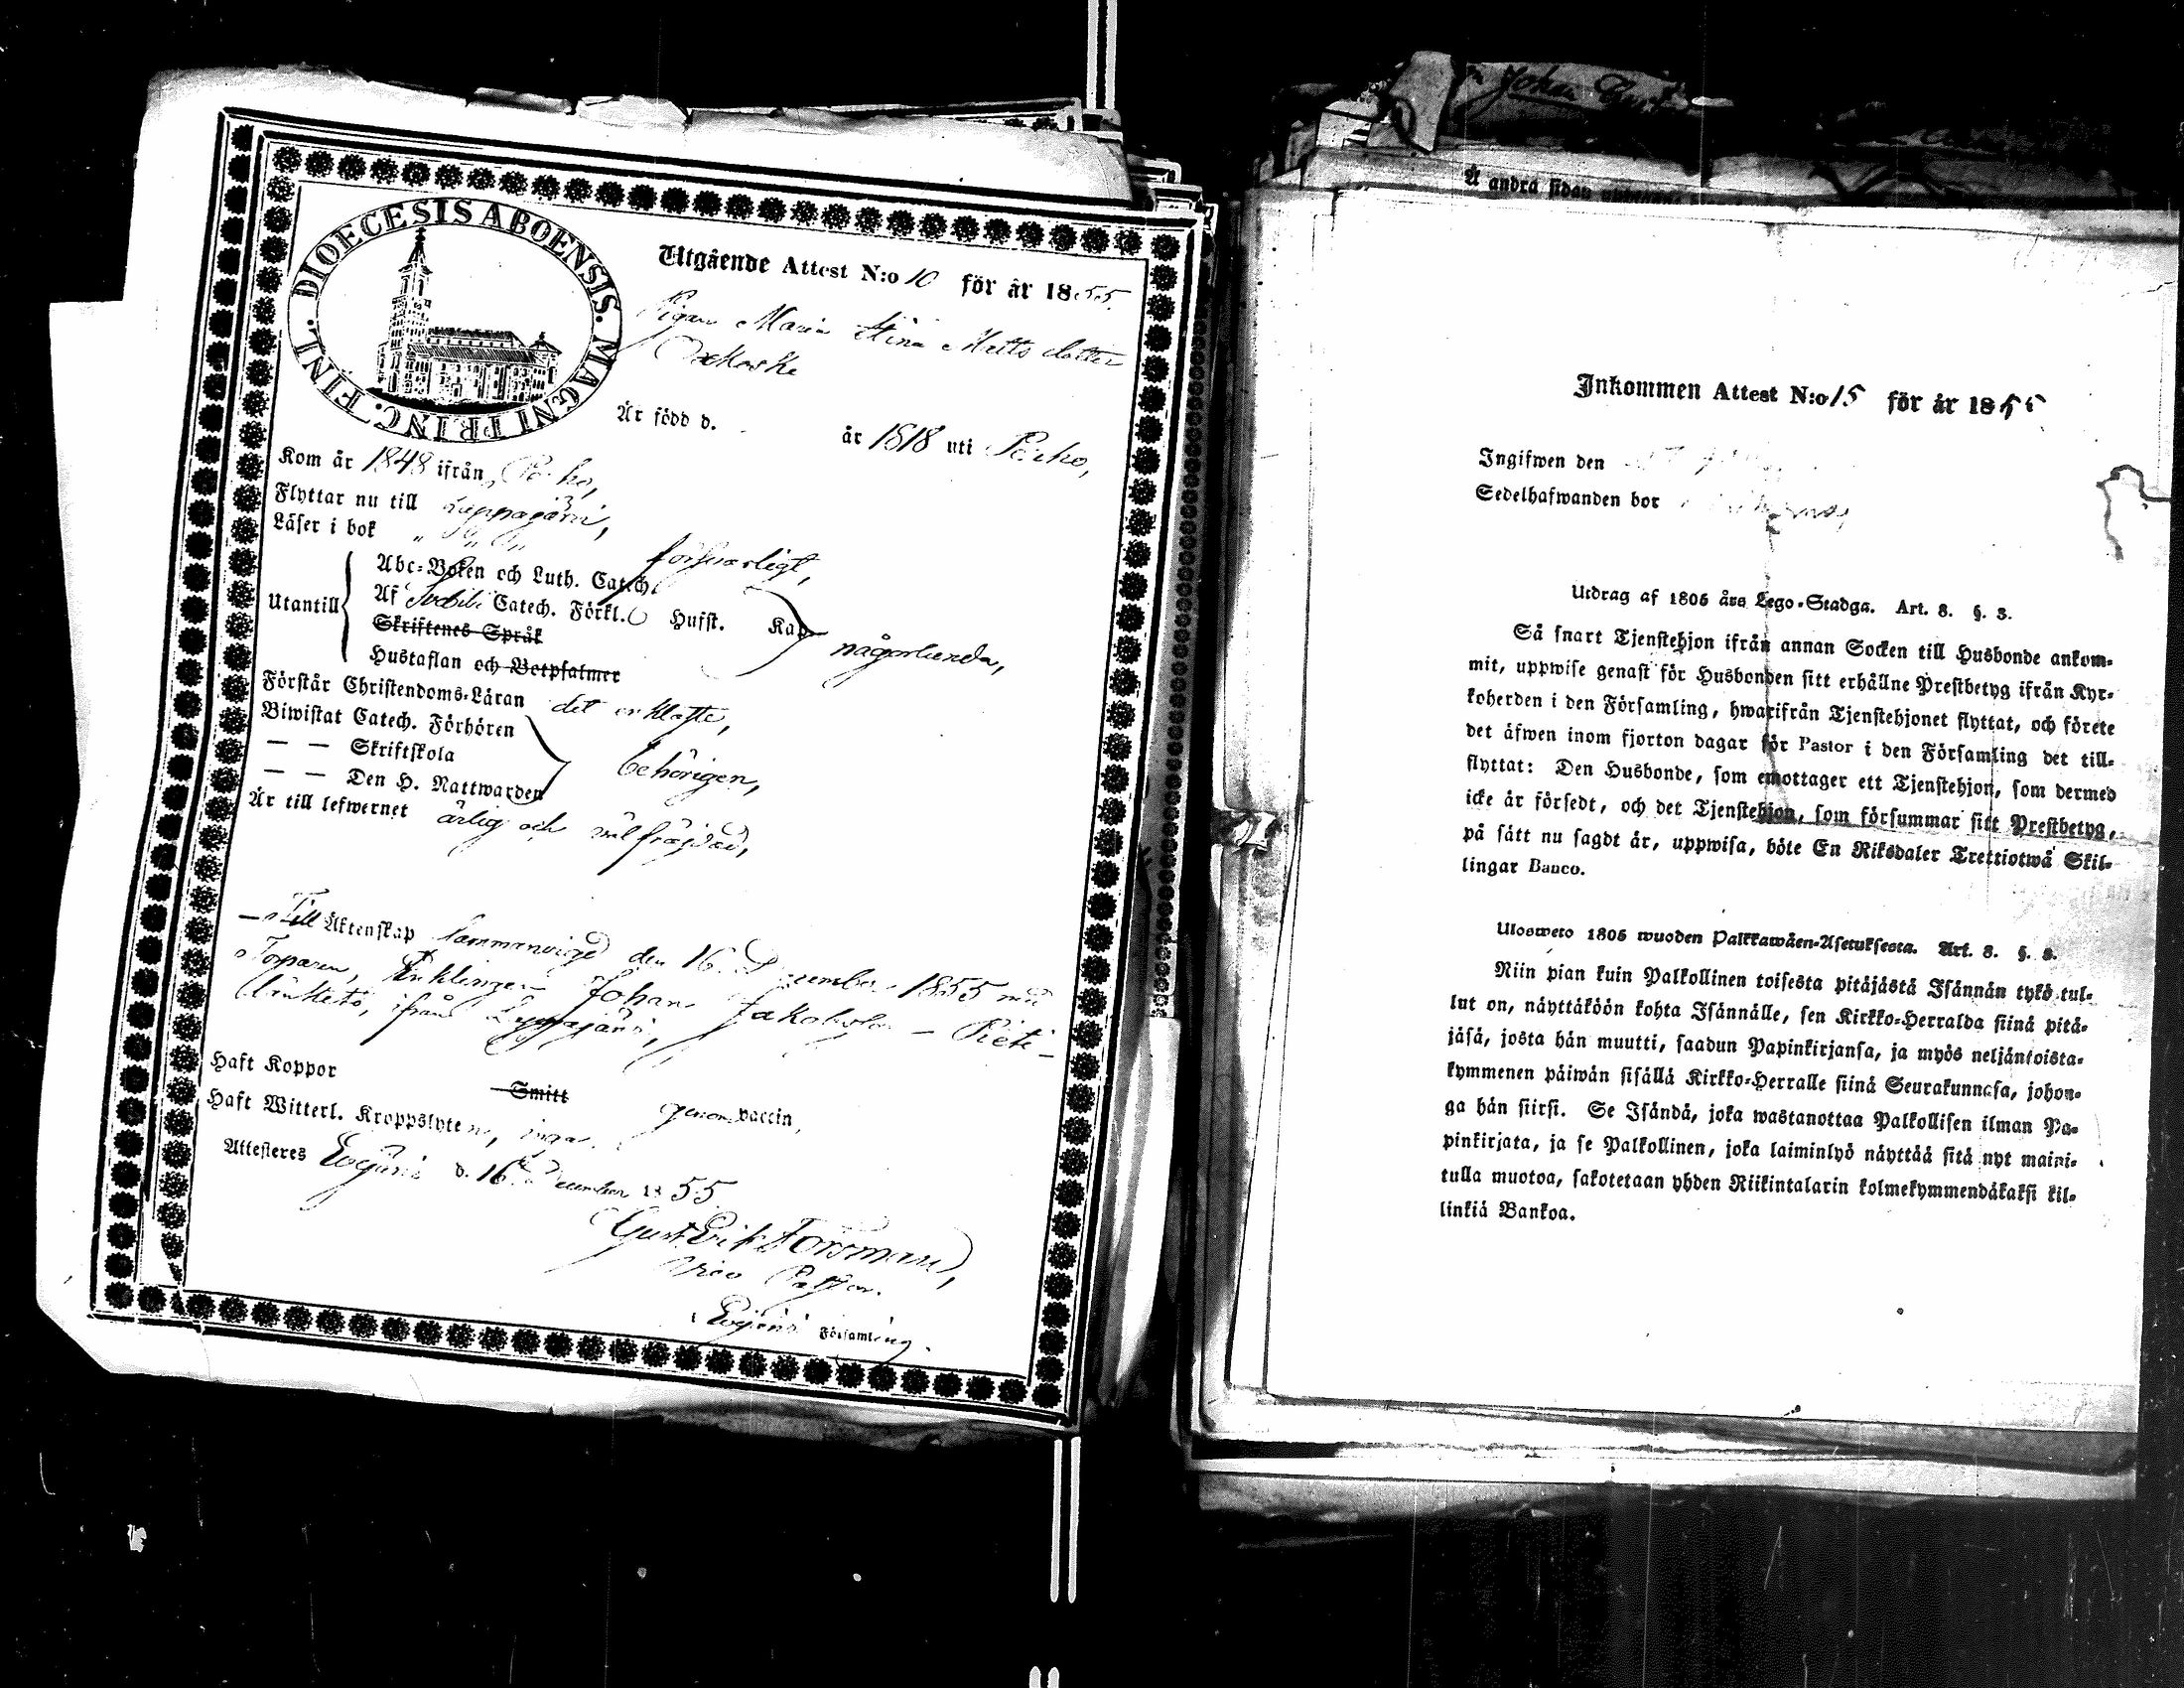 DIOECESIS ABOENSIS. MAGNI PRINC. FINL.
Utgående Attest N:o 10 för år 1855.
Pigan Maria Stina Mattsdotter
Är född d. år 1818 uti
Kom år 1848 ifrån
Flyttar nu till Luppajärvi,
Läser i bok försvarligt,
Utantill
Abc-Boken och Luth. Catech.
Af Catech. Förkl. Husst. Kap
Skriftenes Språk
någorlunda,
Hustaflan och Botpsalmer
Förstår Christendoms-Läran det enklaste,
Biwistat Catech. Förhören
— — Skriftskola behörigen,
— — Den H. Nattwarden
Är till lefwernet ärlig och välfräjdad,
— Till Äktenskap sammanvigd den 16 December 1855 med
Torparen, Enklingen Johan Jakobsson — Pieti-
ifrån Luppajärvi,
Haft Koppor Smitt genom vaccin,
Haft Witterl. Kroppslyten, inga.
Attesteres d. 16 December 1855
Gust Erik Forsman,
Vice Pastor.
Församling.
Å andra sidan
Inkommen Attest N:o 15 för år 1855
Ingifwen den
Sedelhafwanden bor
Utdrag af 1805 års Lego-Stadga. Art. 8. §. 3.
Så snart Tjenstehjon ifrån annan Socken till Husbonde ankom-
mit, uppwise genast för Husbonden sitt erhållne Prestbetyg ifrån Kyr-
koherden i den Församling, hwarifrån Tjenstehjonet flyttat, och förete
det äfwen inom fjorton dagar för Pastor i den Församling det till-
flyttat: Den Husbonde, som emottager ett Tjenstehjon, som dermed
icke är försedt, och det Tjenstehjon, som försummar sitt Prestbetyg,
på sätt nu sagdt är, uppwisa, böte En Riksdaler Trettiotwå Skil-
lingar Banco.
Ulosweto 1805 wuoden Palkkawäen-Asetuksesta. Art. 8. §. 3.
Niin pian kuin Palkollinen toisesta pitäjästä Isännän tykö tul-
lut on, näyttäköön kohta Isännälle, sen Kirkko-Herralda siinä pitä-
jäsä, josta hän muutti, saadun Papinkirjansa, ja myös neljäntoista-
kymmenen päiwän sisällä Kirkko-Herralle siinä Seurakunnasa, johon-
ga hän siirsi. Se Isändä, joka wastanottaa Palkollisen ilman Pa-
pinkirjata, ja se Palkollinen, joka laiminlyö näyttää sitä nyt maini-
tulla muotoa, sakotetaan yhden Riikintalarin kolmekymmendäkaksi kil-
linkiä Bankoa.